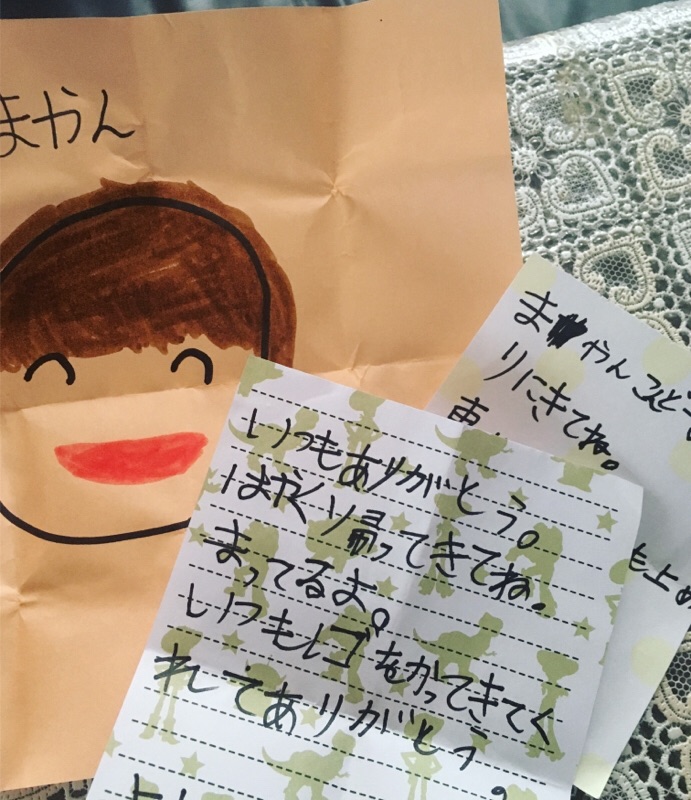 まやん
ま やん
りにきてね。
いつもありがとう。
はやくり帰ってきてね。
まってるよ。
いつもレゴをかってきてく
れてありがとう